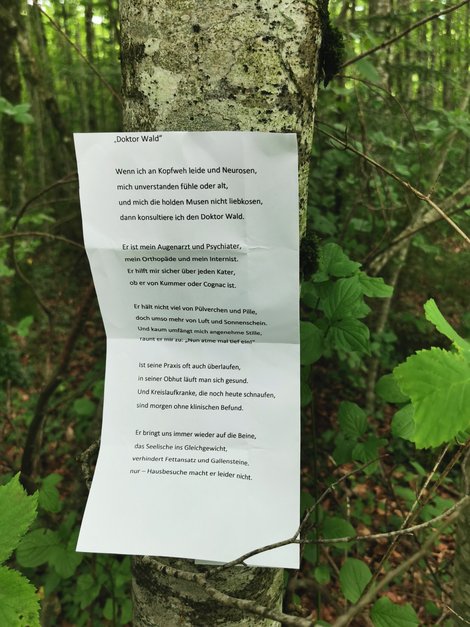 „Doktor Wald"
Wenn ich an Kopfweh leide und Neurosen,
mich unverstanden fühle oder alt,
und mich die holden Musen nicht liebkosen,
dann konsultiere ich den Doktor Wald.
Er ist mein Augenarzt und Psychiater,
mein Orthopäde und mein Internist.
Er hilft mir sicher über jeden Kater,
ob er von Kummer oder Cognac ist.
Er hält nicht viel von Pülverchen und Pille,
doch umso mehr von Luft und Sonnenschein.
Und kaum umfängt mich angenehme Stille,
raunt er mir zu: „Nun atme mal tief ein!"
Ist seine Praxis oft auch überlaufen,
in seiner Obhut läuft man sich gesund.
Und Kreislaufkranke, die noch heute schnaufen,
sind morgen ohne klinischen Befund.
Er bringt uns immer wieder auf die Beine,
das Seelische ins Gleichgewicht,
verhindert Fettansatz und Gallensteine,
nur – Hausbesuche macht er leider nicht.